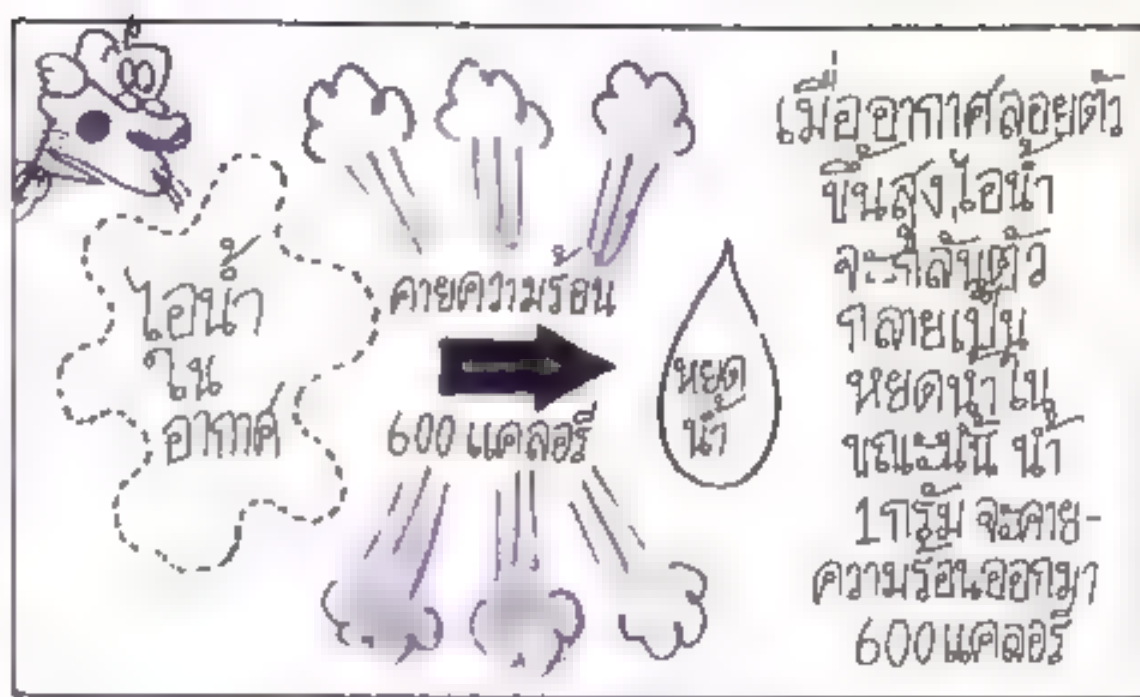 ไอน้ำ
ใน
อากาศ
คายความร้อน
600 แคลอรี
หยด
น้ำ
เมื่ออากาศลอยตัว
ขึ้นสูง,ไอน้ำ
จะกลั่นตัว
กลายเป็น
หยดน้ำใน
ขณะนี้ น้ำ
1 กรัม จะคาย-
ความร้อนออกมา
600 แคลอรี